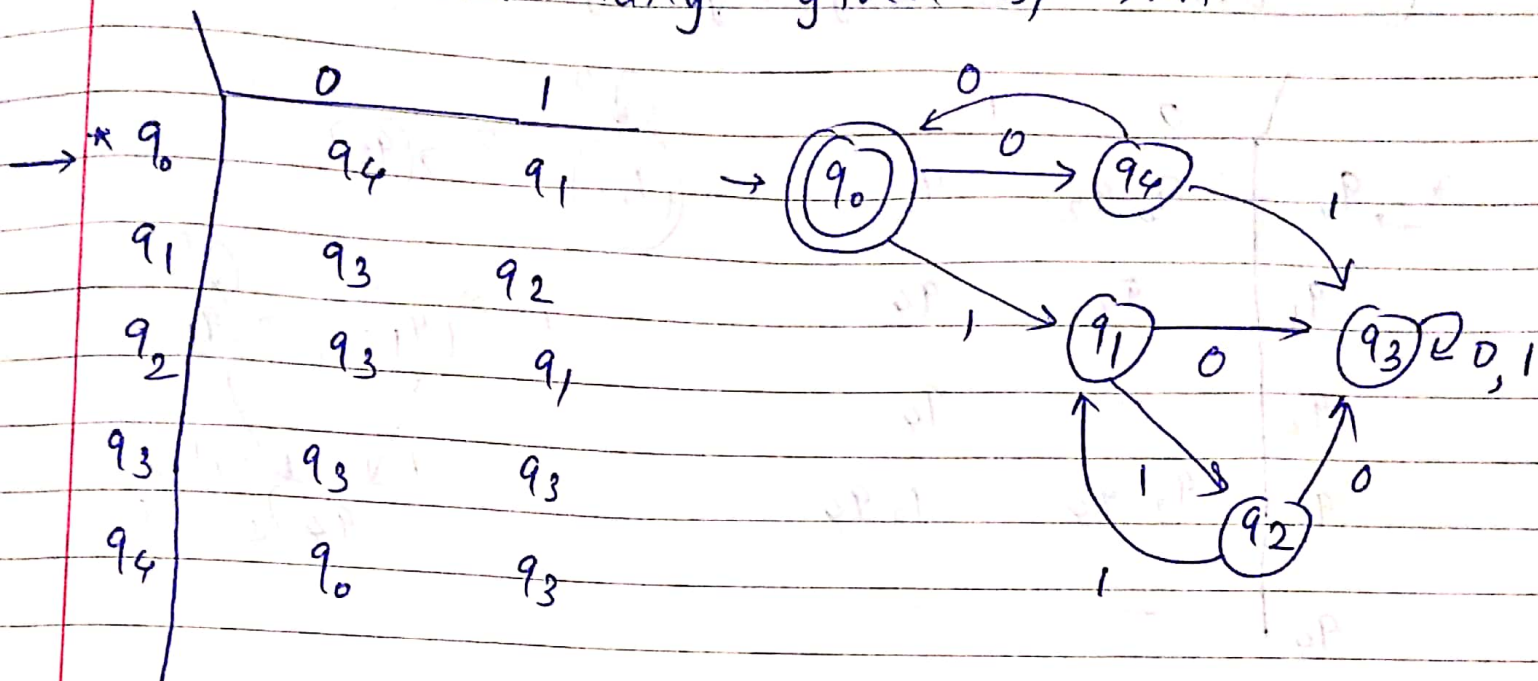 0 1
→ * q0 q4 q1
q1 q3 q2
q2 q3 q1
q3 q3 q3
q4 q0 q3
0
→ q0 0 q4
1
1 q1 0 q3 0, 1
1 q2 0
1